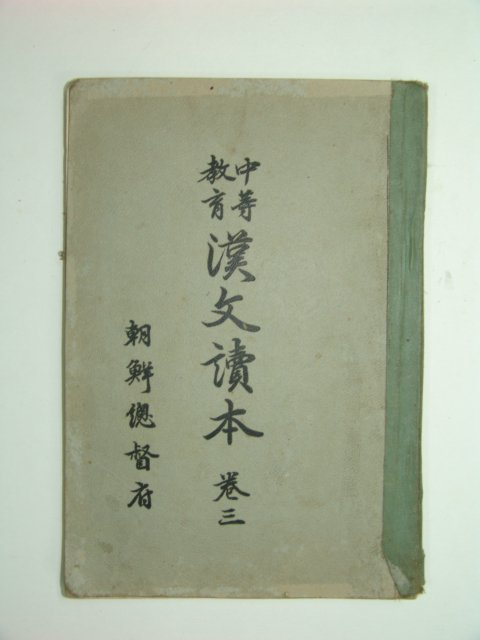 中等
教育
漢文讀本 卷三
朝鮮總督府